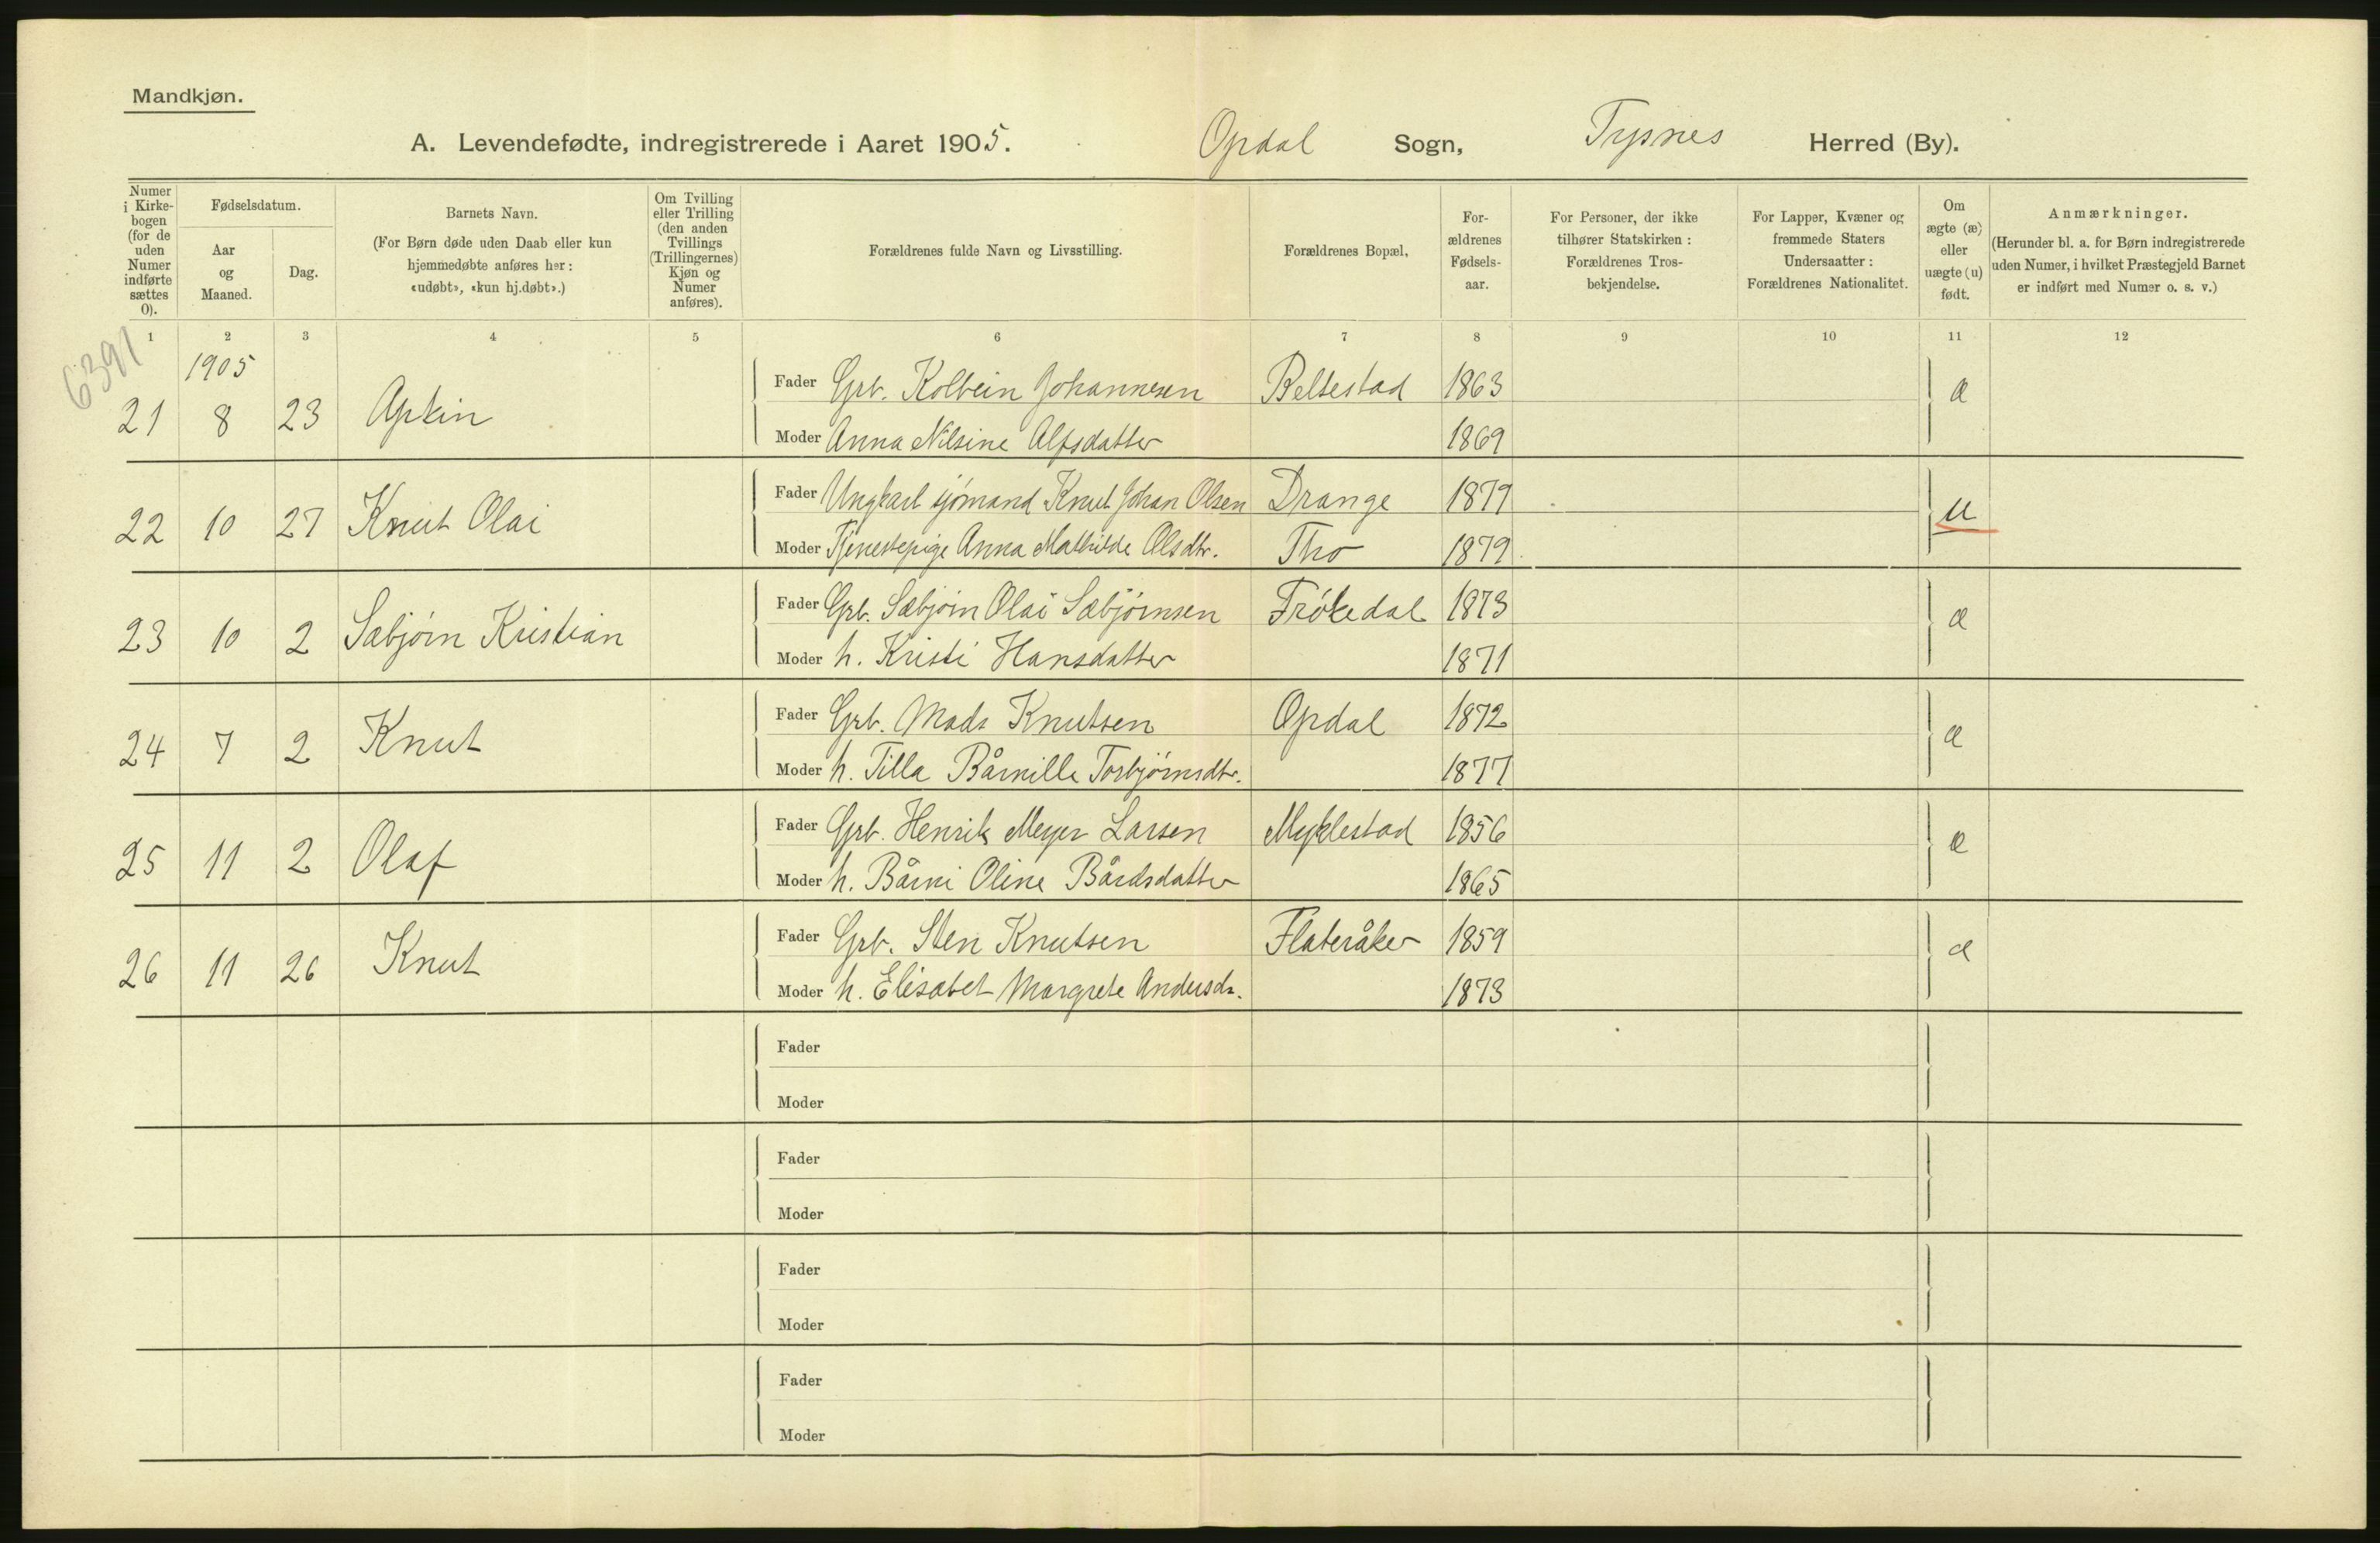 Mandkjøn.
A. Levendefødte, indregistrerede i Aaret 1905. Opdal Sogn, Tysnes Herred (By).
Numer i Kirkebogen (for de uden Numer indførte sættes 0).
Fødselsdatum.
Aar og Maaned.
Dag.
Barnets Navn.
(For Børn døde uden Daab eller kun hjemmedøbte anføres her: «udøbt», «kun hj.døbt».)
Om Tvilling eller Trilling (den anden Tvillings (Trillingernes) Kjøn og Numer anføres).
Forældrenes fulde Navn og Livsstilling.
Forældrenes Bopæl,
Forældrenes Fødselsaar.
For Personer, der ikke tilhører Statskirken: Forældrenes Trosbekjendelse.
For Lapper, Kvæner og fremmede Staters Undersaatter: Forældrenes Nationalitet.
Om ægte (æ) eller uægte (u) født.
Anmærkninger.
(Herunder bl. a. for Børn indregistrerede uden Numer, i hvilket Præstegjeld Barnet er indført med Numer o. s. v.)
1 2 3 4 5 6 7 8 9 10 11 12
6391
1905
Fader Grb. Kolbein Johannesen Beltestad 1863
21 8 23 Apkin æ
Moder Anna Nilsine Alfsdatter 1869
Fader Ungkarl sjømand Knut Johan Olsen Drange 1879
22 10 27 Knut Olai u
Moder Tjenestepige Anna Mathilde Olsdtr. Tho 1879
Fader Grb. Sæbjörn Olai Sæbjörnsen Frökedal 1873
23 10 2 Sæbjörn Kristian æ
Moder h. Kristi Hansdatter 1871
Fader Grb. Mads Knutsen Opdal 1872
24 7 2 Knut æ
Moder h. Tilla Bårnille Torbjörnsdtr. 1877
Fader Grb. Henrik Meyer Larsen Myklestad 1856
25 11 2 Olaf æ
Moder h. Bårni Oline Bårdsdatter 1865
Fader Grb. Sten Knutsen Flateråker 1859
26 11 26 Knut æ
Moder h. Elisabet Margrete Andersdr. 1873
Fader
Moder
Fader
Moder
Fader
Moder
Fader
Moder